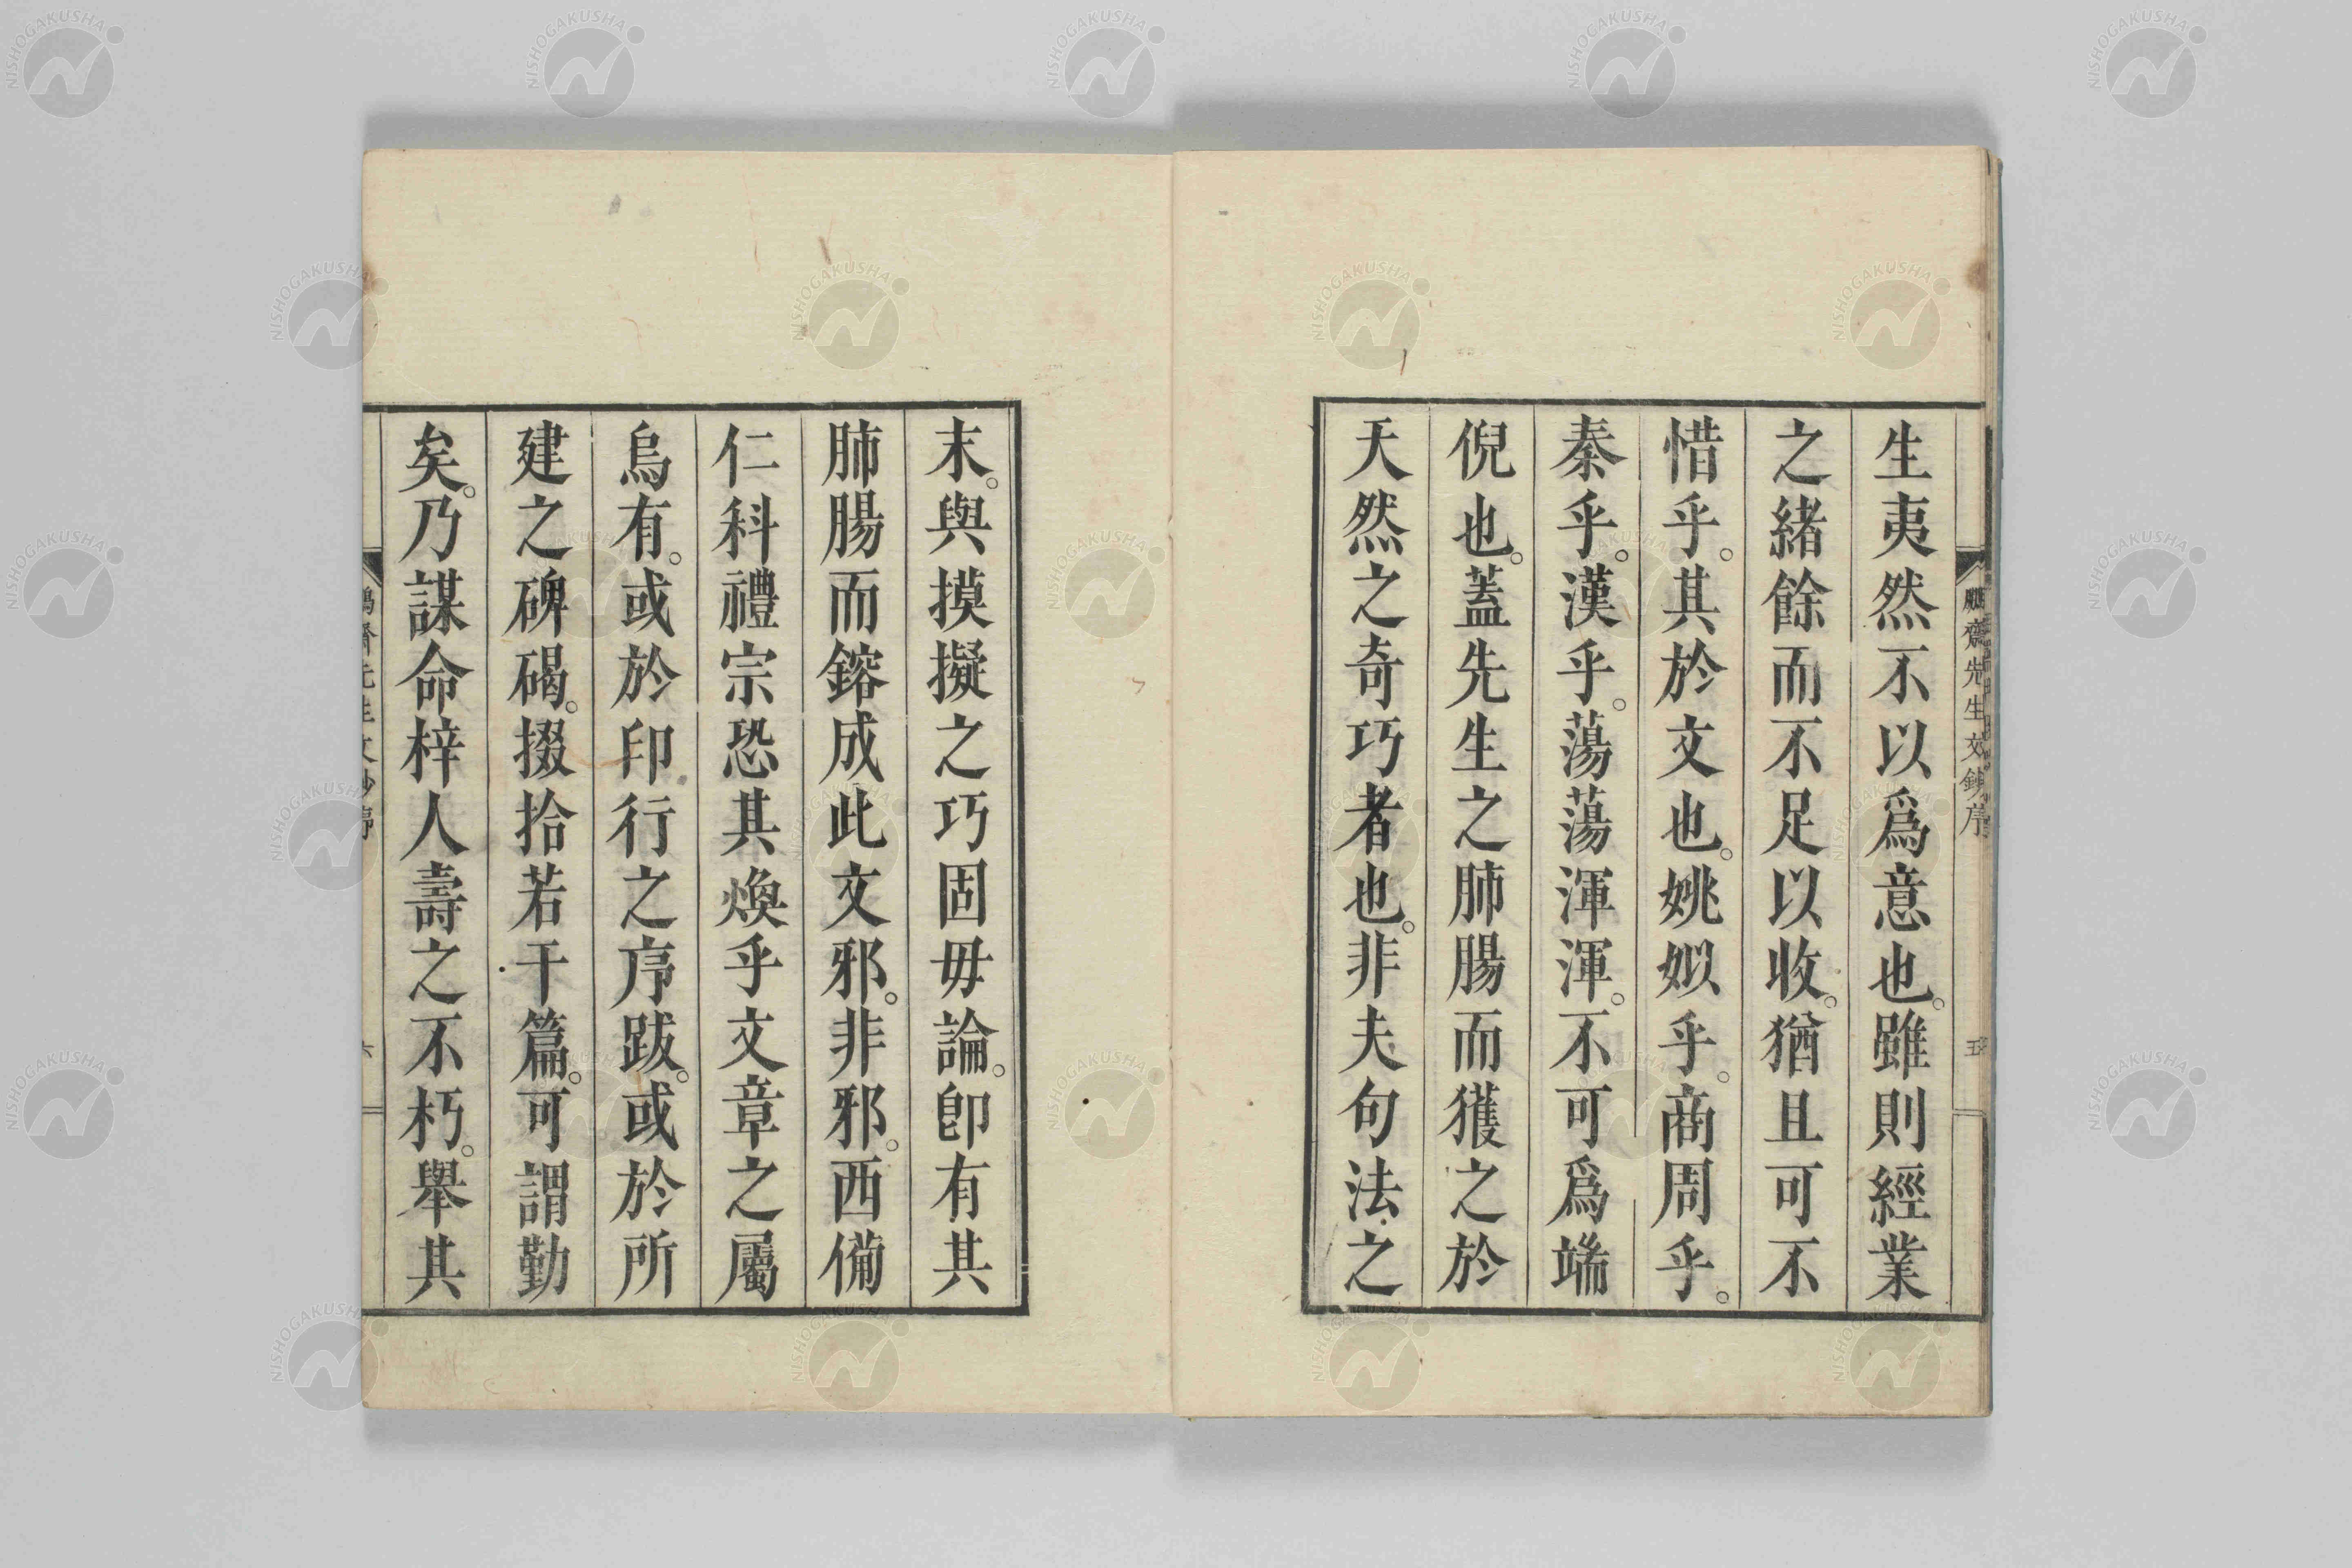 鵬齋先生文鈔序
五
生夷然不以爲意也。雖則經業
之緒餘而不足以收。猶且可不
惜乎。其於文也。姚姒乎。商周乎。
秦乎。漢乎。蕩蕩渾渾。不可爲端
倪也。蓋先生之肺腸而獲之於
天然之奇巧者也。非夫句法之
末。與摸擬之巧固毋論。卽有其
肺腸而鎔成此文邪。非邪。西備
仁科禮宗恐其煥乎文章之屬
烏有。或於印行之序跋。或於所
建之碑碣。掇拾若干篇。可謂勤
矣。乃謀命梓人壽之不朽。舉其
NISHOGAKUSHA